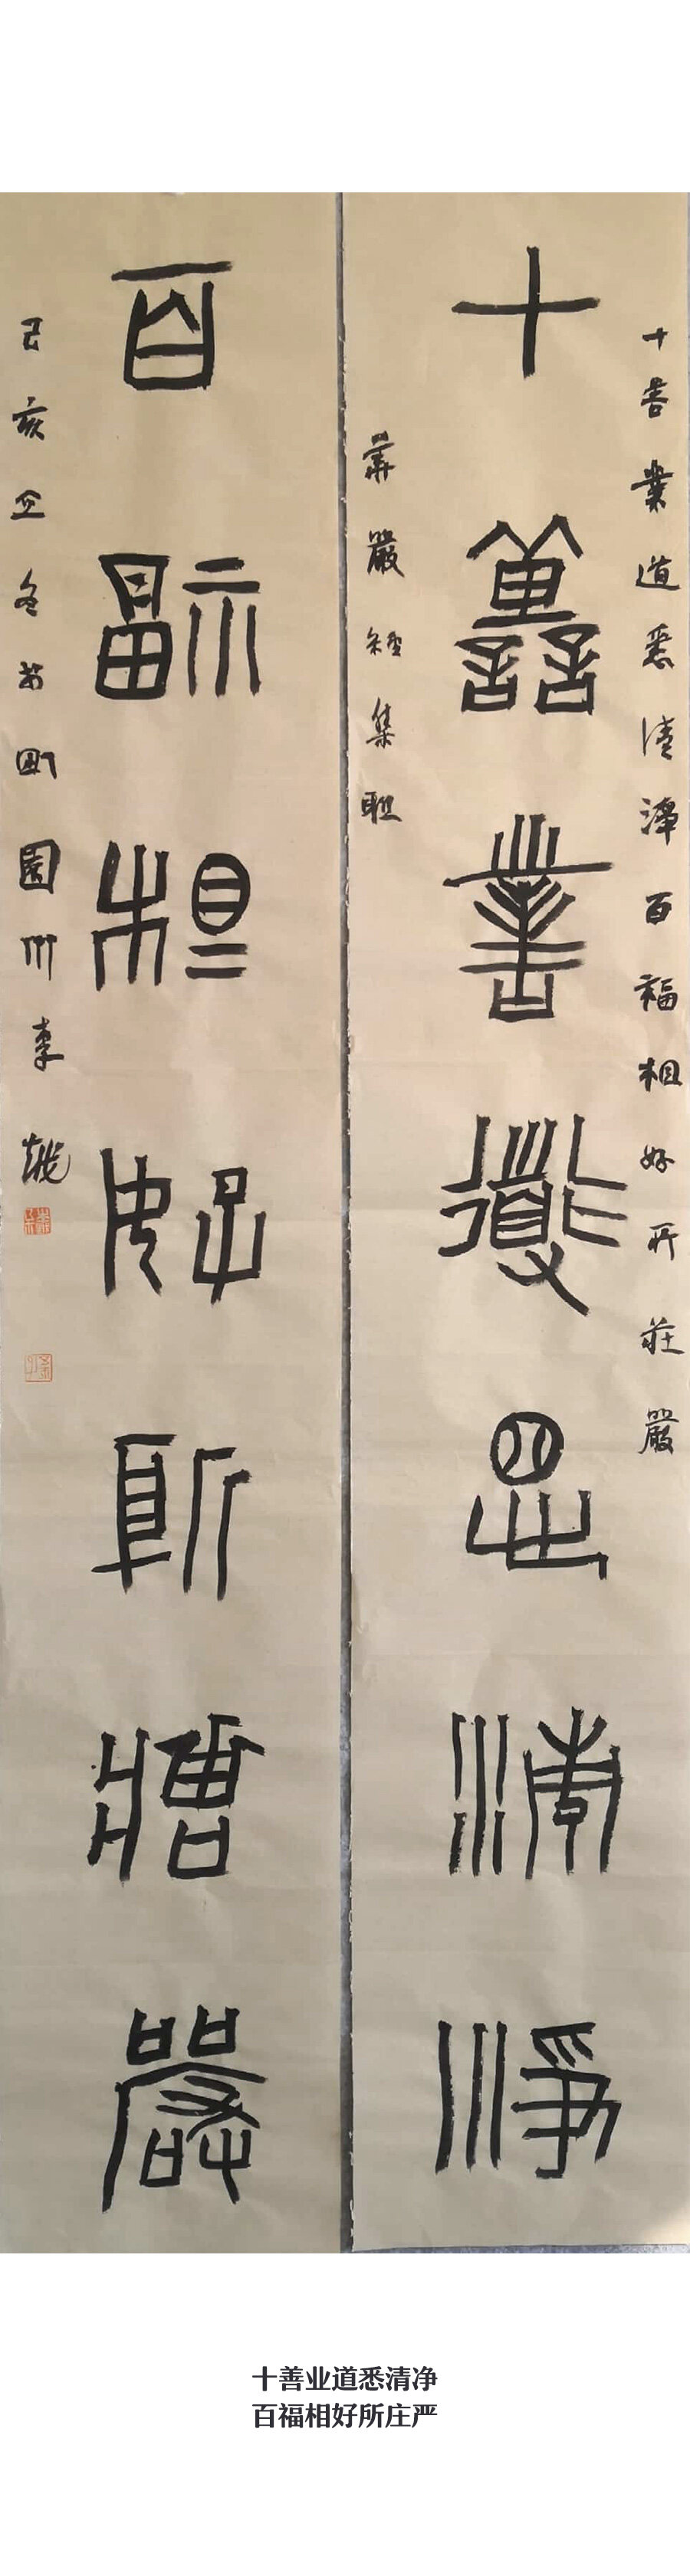 十善業道悉清淨百福相好所莊嚴
十善業道悉清淨
華嚴經集聯
百福相好所莊嚴
己亥立冬
園 李
十善业道悉清净
百福相好所庄严